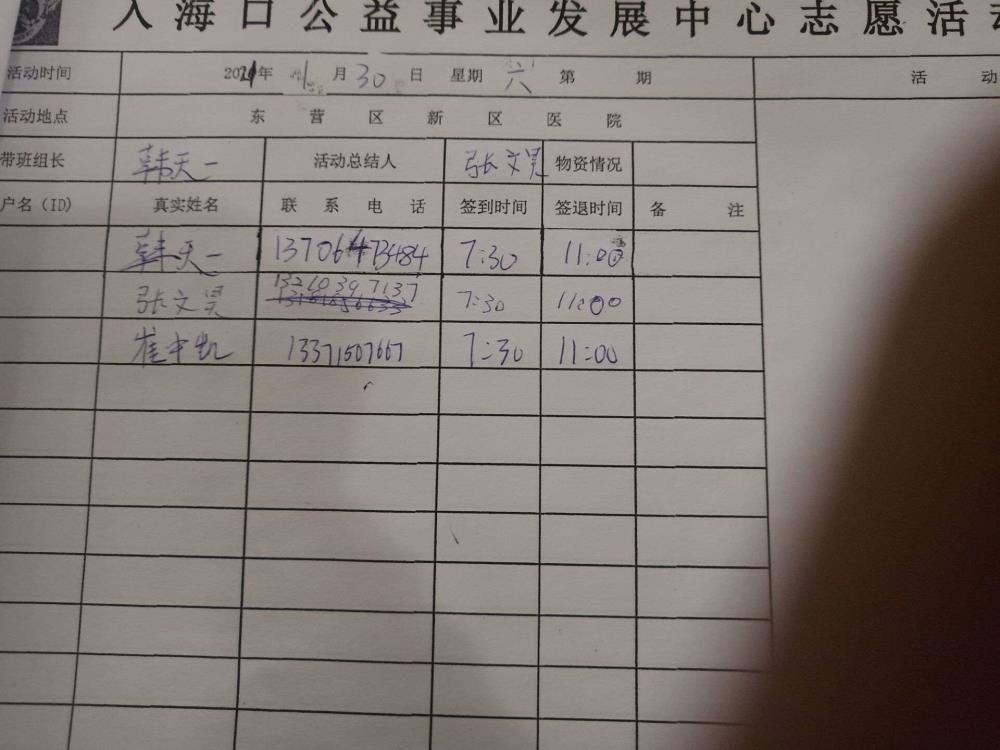 入海口公益事业发展中心志愿活动
活动时间 2021年 1月30日 星期六 第 期 活 动
活动地点 东营区新区医院
带班组长 韩天一 活动总结人 张文昊 物资情况
户名（ID） 真实姓名 联系电话 签到时间 签退时间 备注
韩天一 13706473484 7:30 11:00
张文昊 13210397137 7:30 11:00
崔中凯 13371507667 7:30 11:00